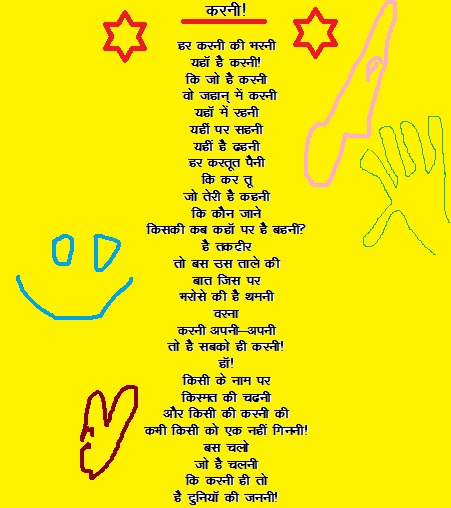 करनी!
हर करनी की भरनी
यहॉ है करनी!
कि जो है करनी
वो जहान् में करनी
यहॉ में रहनी
यहीं पर सहनी
यहीं है ढहनी
हर करतूत पैनी
कि कर तू
जो तेरी है कहनी
कि कौन जाने
किसकी कब कहॉ पर है बहनीं?
है तकदीर
तो बस उस ताले की
बात जिस पर
भरोसे की है थमनी
वरना
करनी अपनी–अपनी
तो है सबको ही करनी!
हॉ!
किसी के नाम पर
किस्मत की चढनी
और किसी की करनी की
कभी किसी को एक नहीं गिननी!
बस चलो
जो है चलनी
कि करनी ही तो
है दुनियॉ की जननी!